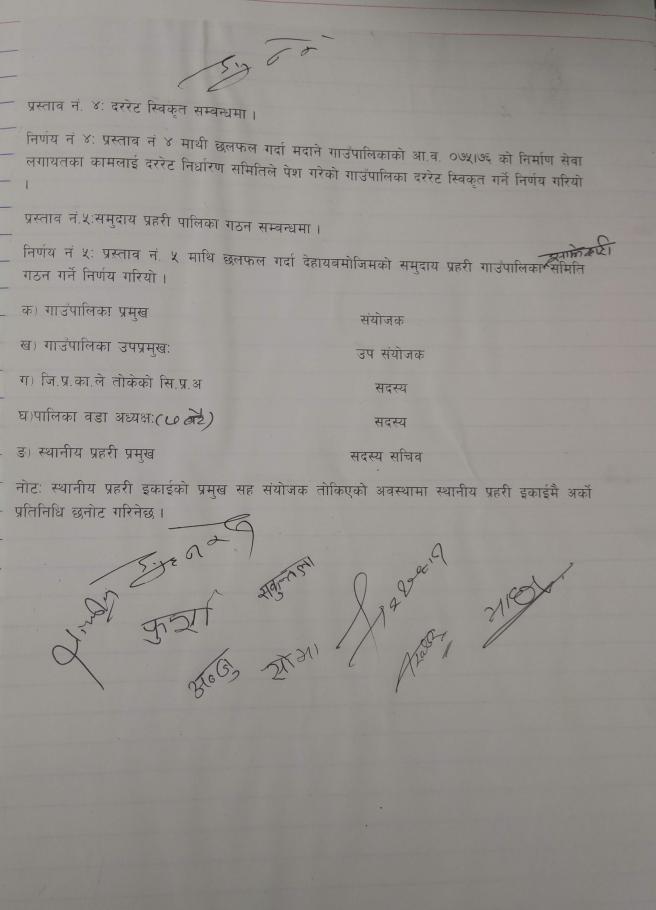 प्रस्ताव नं. ४: दररेट स्विकृत सम्बन्धमा ।
निर्णय नं ४: प्रस्ताव नं ४ माथी छलफल गर्दा मदाने गाउँपालिकाको आ.व. ०७५।७६ को निर्माण सेवा
लगायतका कामलाई दररेट निर्धारण समितिले पेश गरेको गाउँपालिका दररेट स्विकृत गर्ने निर्णय गरियो
।
प्रस्ताव नं.५:समुदाय प्रहरी पालिका गठन सम्बन्धमा ।
निर्णय नं ५: प्रस्ताव नं. ५ माथि छलफल गर्दा देहायबमोजिमको समुदाय प्रहरी गाउँपालिका समिति
गठन गर्ने निर्णय गरियो ।
क) गाउँपालिका प्रमुख संयोजक
ख) गाउँपालिका उपप्रमुख: उप संयोजक
ग) जि.प्र.का.ले तोकेको सि.प्र.अ सदस्य
घ)पालिका वडा अध्यक्ष:(७ वटै) सदस्य
ङ) स्थानीय प्रहरी प्रमुख सदस्य सचिव
नोट: स्थानीय प्रहरी इकाईको प्रमुख सह संयोजक तोकिएको अवस्थामा स्थानीय प्रहरी इकाईमै अर्को
प्रतिनिधि छनोट गरिनेछ ।
सकुन्तला
अन्जु